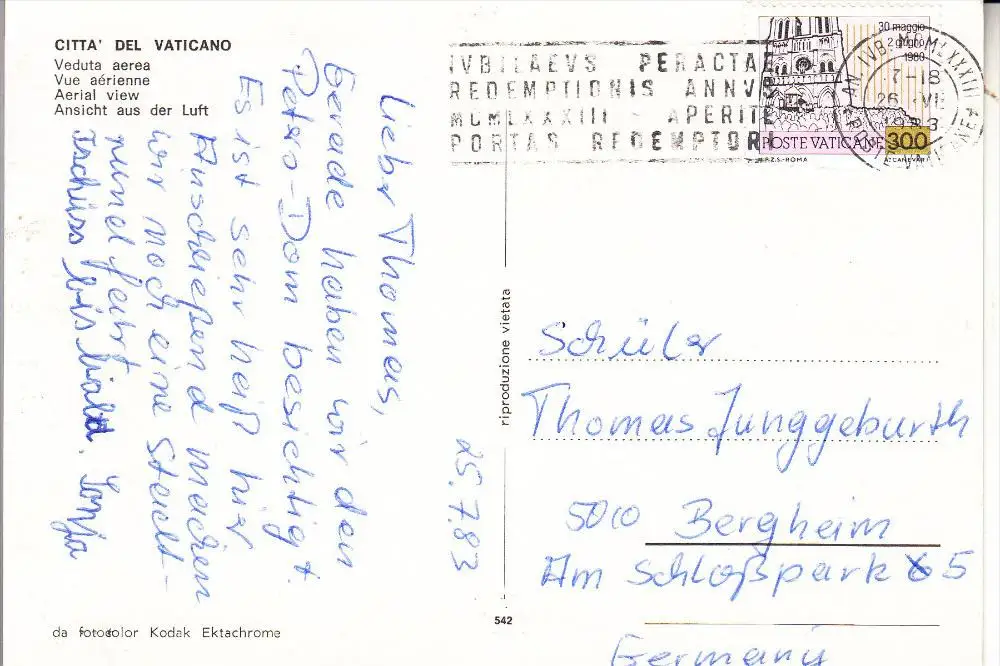 CITTA' DEL VATICANO
Veduta aerea
Vue aérienne
Aerial view
Ansicht aus der Luft
Lieber Thomas,
Gerade haben wir den
Peters-Dom besichtigt.
Es ist sehr heiß hier
Anschießend machen
wir noch eine Stadt-
rundfahrt
Tschüss bis bald. Sonja
25.7.83
da fotocolor Kodak Ektachrome
IVBILAEVS PERACTAE
REDEMPTIONIS ANNVS
MCMLXXXIII - APERITE
PORTAS REDEMPTORI
30 maggio
2 giugno
1980
17-18
26. VII
1983
POSTE VATICANE 300
I.P.Z.S.-ROMA A. CANEVARI
riproduzione vietata
542
Schüler
Thomas Junggeburth
5010 Bergheim
Am Schloßpark 5
Germany